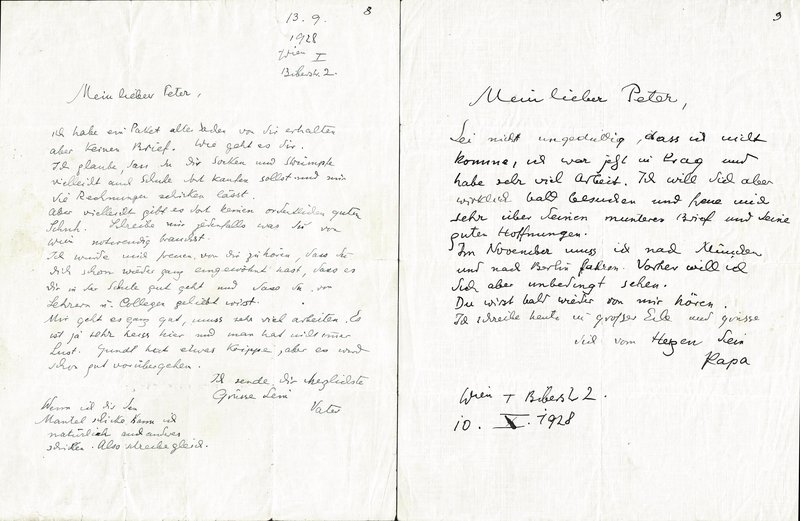 8
13. 9.
1928
Wien I
Biberstr. 2.
Mein lieber Peter,
ich habe ein Paket alte Sachen von Dir erhalten
aber keinen Brief. Wie geht es Dir.
Ich glaube, dass Du Dir Socken und Strümpfe
vielleicht auch Schuhe dort kaufen sollst und mir
die Rechnungen schicken lässt.
Aber vielleicht gibt es dort keinen ordentlichen guten
Schuh. Schreibe mir jedenfalls was Du von
Wien notwendig brauchst.
Ich würde mich freuen, von Dir zu hören, dass Du
Dich schon wieder ganz eingewöhnt hast, dass es
Dir in der Schule gut geht und dass Du von
Lehrern u. Collegen geliebt wirst.
Mir geht es ganz gut, muss sehr viel arbeiten. Es
ist ja sehr heiss hier und man hat nicht immer
Lust. Gundl hat etwas Grippe, aber es wird
schon gut vorübergehen.
Ich sende Dir herzlichste
Grüsse Dein
Vater
Wenn ich Dir den
Mantel schicke kann ich
natürlich auch andres
schicken. Also schreibe gleich.
9
Mein lieber Peter,
Sei nicht ungeduldig, dass ich nicht
komme, ich war jetzt in Prag und
habe sehr viel Arbeit. Ich will Dich aber
wirklich bald besuchen und freue mich
sehr über Deinen munteren Brief und Deine
guten Hoffnungen.
Im November muss ich nach München
und nach Berlin fahren. Vorher will ich
Dich aber unbedingt sehen.
Du wirst bald wieder von mir hören.
Ich schreibe heute in großer Eile und grüsse
Dich vom Herzen Dein
Papa
Wien I Biberstr. 2.
10. X. 1928